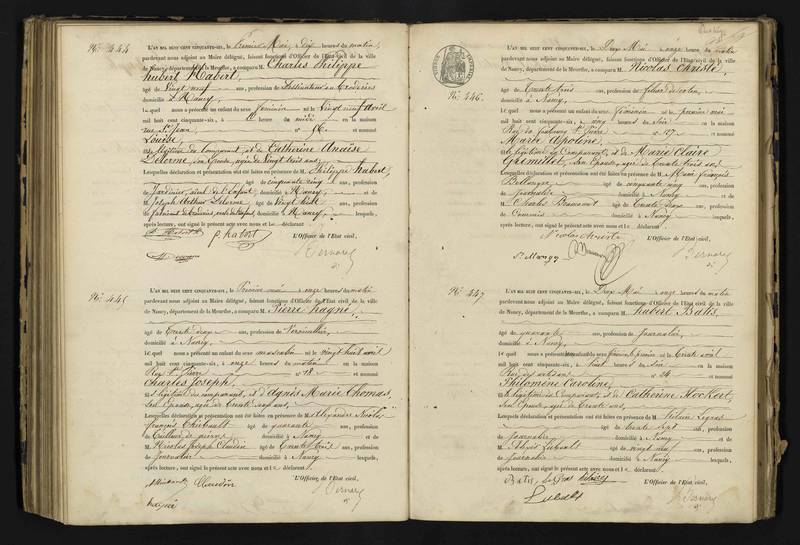 N° 444
L'AN MIL HUIT CENT CINQUANTE-SIX, le Premier Mai, dix heures du matin,
pardevant nous adjoint au Maire délégué, faisant fonctions d'Officier de l'État civil de la ville
de Nancy, département de la Meurthe, a comparu M. Charles Philippe
hubert Habert,
âgé de Vingt neuf ans, profession de Destinateur en broderies
domicilié à Nancy,
Lequel nous a présenté un enfant du sexe féminin né le Vingt neuf Avril
mil huit cent cinquante-six, à heures du midi en la maison
rue St Jean, n° et nommé
Louise,
fille légitime du Comparant, et de Catherine Anaïse
Delorme, son Epouse, agée de Vingt trois ans,
Lesquelles déclaration et présentation ont été faites en présence de M. Philippe habert,
âgé de cinquante cinq ans, profession
de Jardinier, aïeul de l'enfant, domicilié à Nancy, et de
M. Joseph Arthur Delorme, âgé de Vingt huit ans, profession
de fabricant de broderies, oncle de l'enfant, domicilié à Nancy, lesquels,
après lecture, ont signé le présent acte avec nous et le déclarant
L'Officier de l'État civil,
P. habert
Bernard
N° 445
L'AN MIL HUIT CENT CINQUANTE-SIX, le Premier mai onze heures du matin
pardevant nous adjoint au Maire délégué, faisant fonctions d'Officier de l'État civil de la ville
de Nancy, département de la Meurthe, a comparu M. Pierre hagné,
âgé de Trente deux ans, profession de Vermicellier,
domicilié à Nancy,
Lequel nous a présenté un enfant du sexe masculin né le vingt huit avril
mil huit cent cinquante-six, à onze heures du matin en la maison
Rue St Pierre n° 18 et nommé
Charles Joseph,
fils légitime du comparant, et d'Agnès Marie Thomas,
son Epouse, agée de Trente cinq ans,
Lesquelles déclaration et présentation ont été faites en présence de M. Alexandre Nicolas
françois Thiébault âgé de quarante ans, profession
de Tailleur de pierres domicilié à Nancy et de
M. Nicolas Joseph Claudin âgé de Trente huit ans, profession
de Journalier domicilié à Nancy lesquels,
après lecture, ont signé le présent acte avec nous et le déclarant
L'Officier de l'État civil,
Claudin
Bernard
hagné
N° 446.
L'AN MIL HUIT CENT CINQUANTE-SIX, le Deux Mai onze heures du matin
pardevant nous adjoint au Maire délégué, faisant fonctions d'Officier de l'État civil de la ville
de Nancy, département de la Meurthe, a comparu M. Nicolas Christé,
âgé de Trente trois ans, profession de fileur de coton,
domicilié à Nancy,
Lequel nous a présenté un enfant du sexe féminin né le premier mai
mil huit cent cinquante-six, à cinq heures du soir en la maison
Rue du faubourg St Pierre n° 127 et nommé
Marie Apoline,
fille légitime du Comparant, et de Marie Claire
Gremillet, son Epouse, agée de Trente trois ans,
Lesquelles déclaration et présentation ont été faites en présence de M. françois
Bellange âgé de cinquante cinq ans, profession
de Journalier domicilié à Nancy et de
M. Charles âgé de Trente deux ans, profession
de Commis domicilié à Nancy lesquels,
après lecture, ont signé le présent acte avec nous et le déclarant
L'Officier de l'État civil,
Nicolas christé
Bernard
N° 447
L'AN MIL HUIT CENT CINQUANTE-SIX, le Deux Mai onze heures du matin
pardevant nous adjoint au Maire délégué, faisant fonctions d'Officier de l'État civil de la ville
de Nancy, département de la Meurthe, a comparu M. hubert Batis,
âgé de quarante ans, profession de Journalier,
domicilié à Nancy,
Lequel nous a présenté un enfant du sexe féminin né le trente avril
mil huit cent cinquante-six, à huit heures du soir en la maison
Rue des artisans n° 24 et nommé
Philomène Caroline,
fille légitime du Comparant, et de Catherine Hockert,
son Epouse, agée de Trente ans,
Lesquelles déclaration et présentation ont été faites en présence de M. Legras
âgé de Trente sept ans, profession
de Journalier domicilié à Nancy et de
M. Alexis Luxault âgé de vingt neuf ans, profession
de Journalier domicilié à Nancy lesquels,
après lecture, ont signé le présent acte avec nous et le déclarant
L'Officier de l'État civil,
Batis, LeGras
Bernard